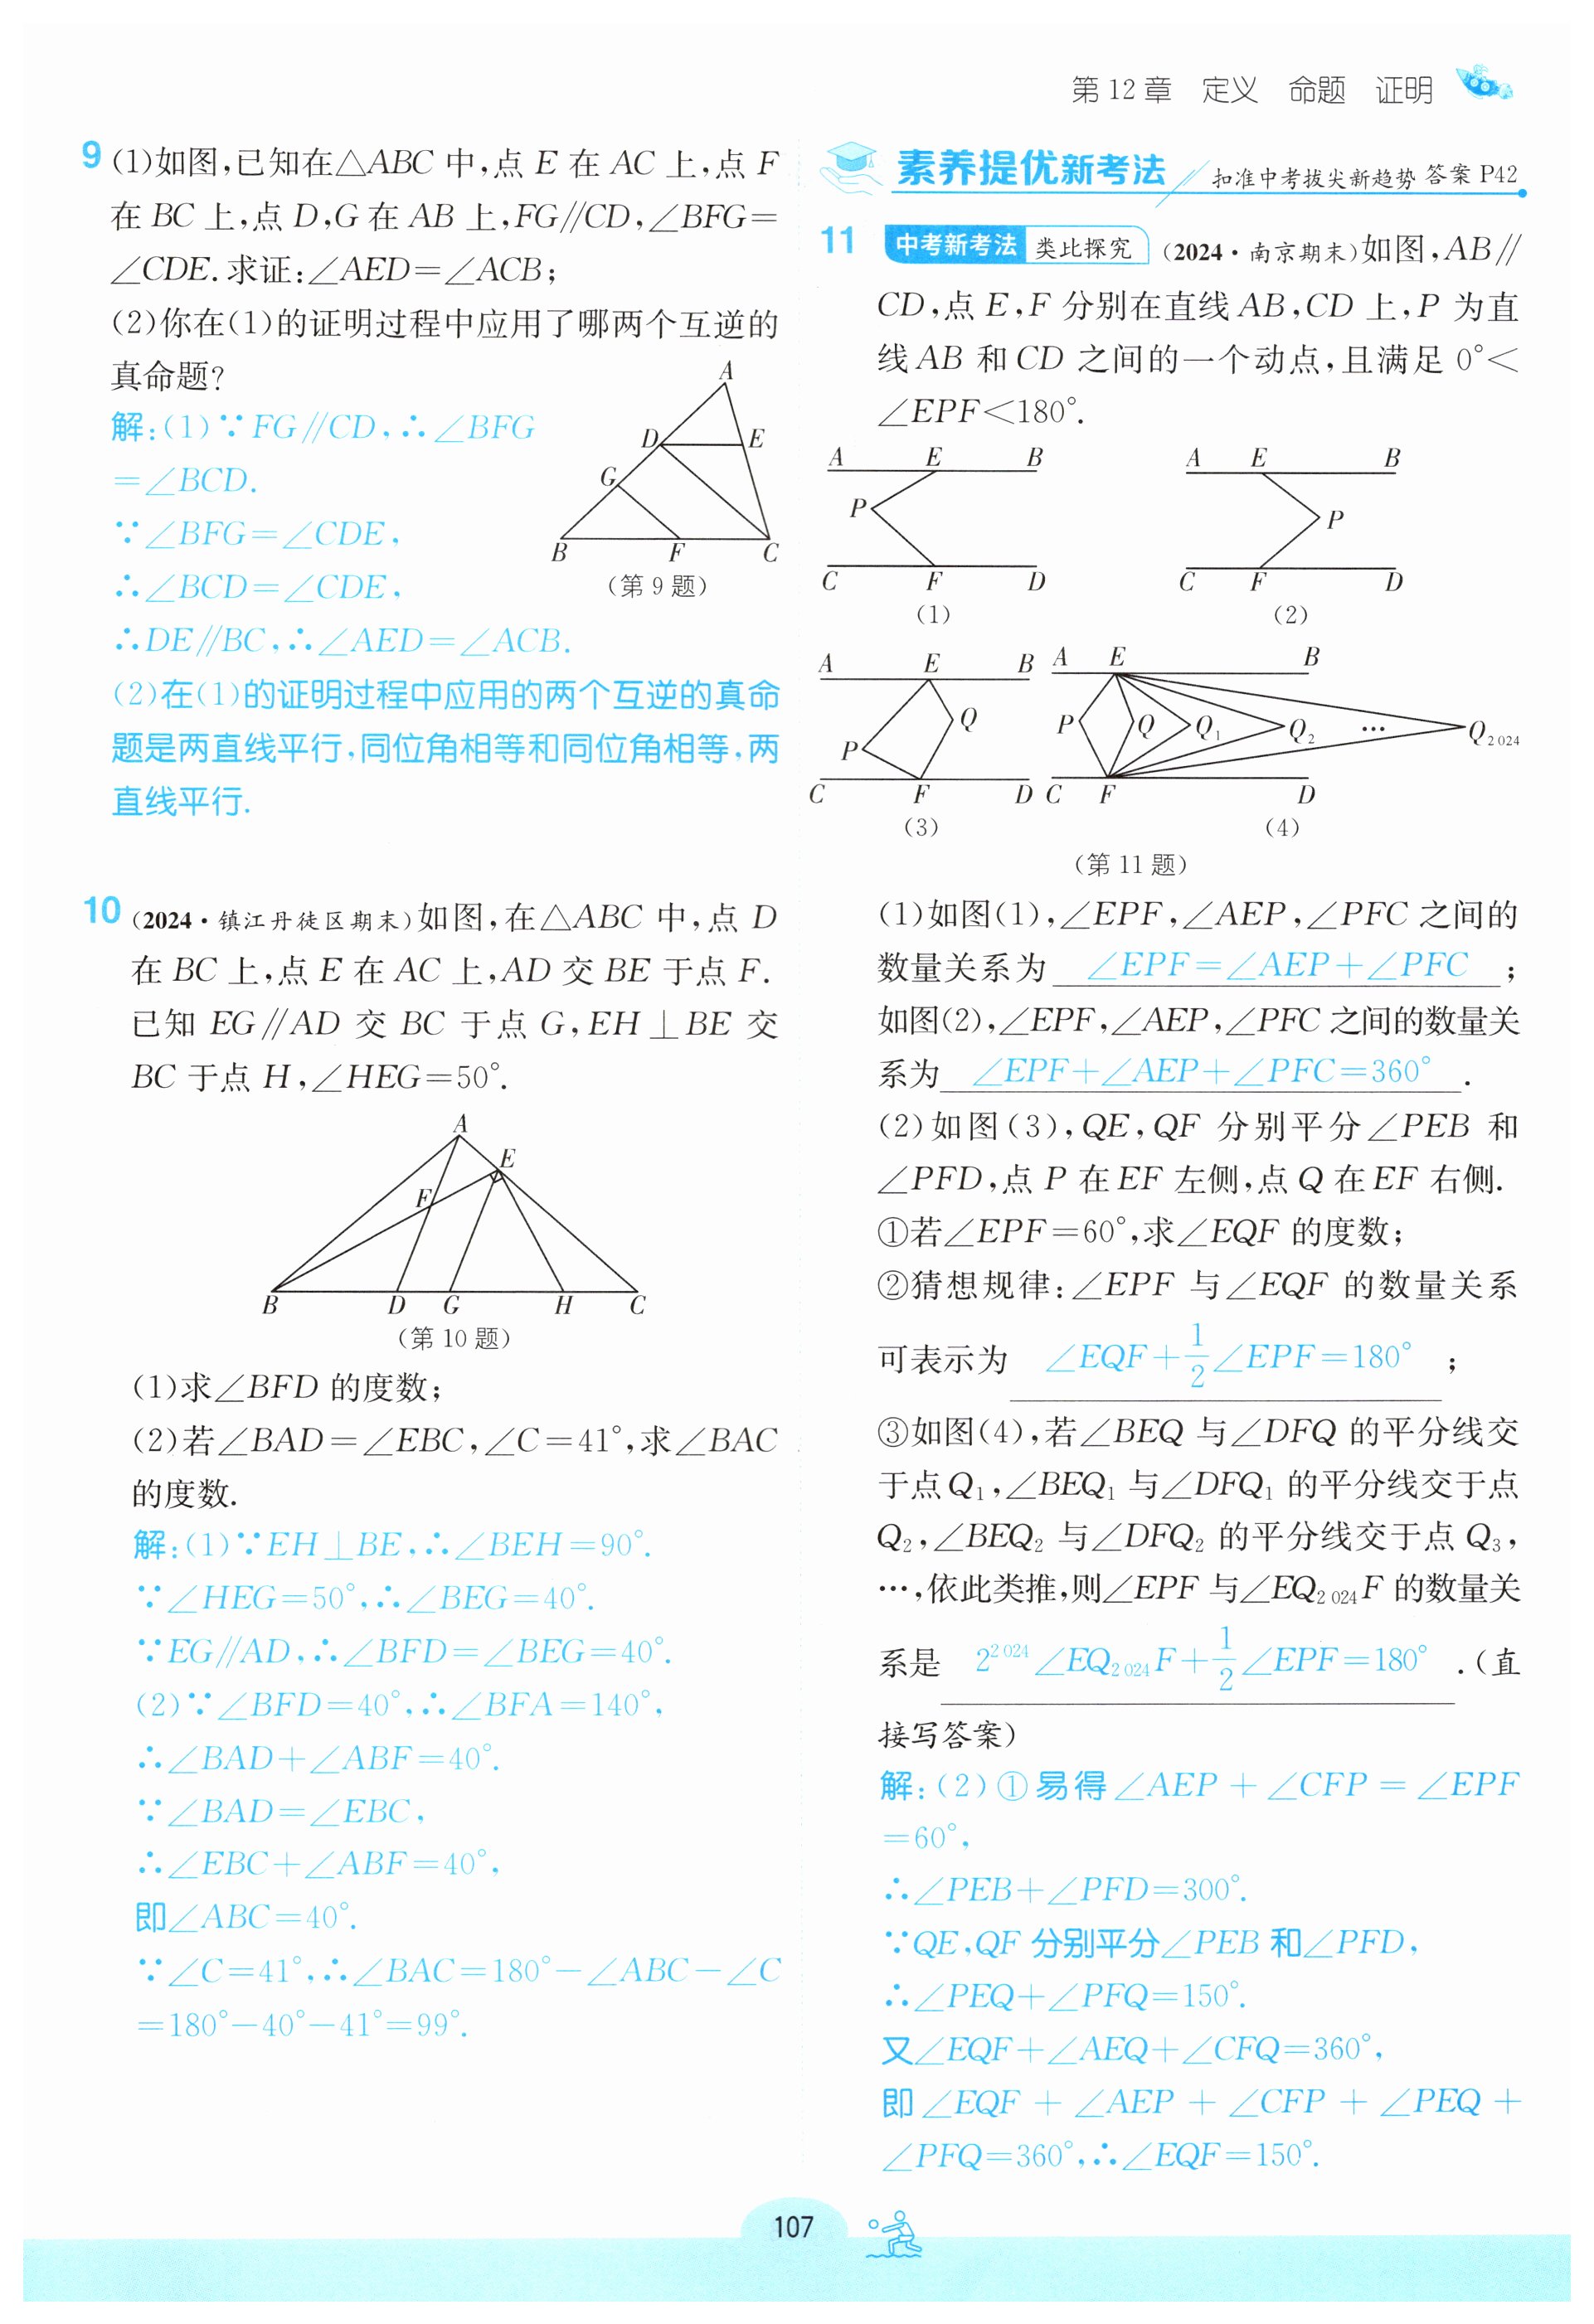 第12章 定义 命题 证明
9 (1)如图,已知在△ABC 中,点 E 在 AC 上,点 F
在 BC 上,点 D,G 在 AB 上,FG∥CD,∠BFG=
∠CDE.求证:∠AED=∠ACB;
(2)你在(1)的证明过程中应用了哪两个互逆的
真命题?
解:(1)∵FG∥CD,∴∠BFG
=∠BCD.
∵∠BFG=∠CDE,
∴∠BCD=∠CDE,
∴DE∥BC,∴∠AED=∠ACB.
A
D
E
G
B
F
C
(第 9 题)
(2)在(1)的证明过程中应用的两个互逆的真命
题是两直线平行,同位角相等和同位角相等,两
直线平行.
10 (2024·镇江丹徒区期末)如图,在△ABC 中,点 D
在 BC 上,点 E 在 AC 上,AD 交 BE 于点 F.
已知 EG∥AD 交 BC 于点 G,EH⊥BE 交
BC 于点 H,∠HEG=50°.
A
E
F
B D G H C
(第 10 题)
(1)求∠BFD 的度数;
(2)若∠BAD=∠EBC,∠C=41°,求∠BAC
的度数.
解:(1)∵EH⊥BE,∴∠BEH=90°.
∵∠HEG=50°,∴∠BEG=40°.
∵EG∥AD,∴∠BFD=∠BEG=40°.
(2)∵∠BFD=40°,∴∠BFA=140°,
∴∠BAD+∠ABF=40°.
∵∠BAD=∠EBC,
∴∠EBC+∠ABF=40°,
即∠ABC=40°.
∵∠C=41°,∴∠BAC=180°-∠ABC-∠C
=180°-40°-41°=99°.
素养提优新考法 扣准中考拔尖新趋势 答案 P42
11 中考新考法 类比探究 (2024·南京期末)如图,AB∥
CD,点 E,F 分别在直线 AB,CD 上,P 为直
线 AB 和 CD 之间的一个动点,且满足 0°<
∠EPF<180°.
A E B
P
C F D
(1)
A E B
P
C F D
(2)
A E B
Q
P
C F D
(3)
A E B
P Q Q₁ Q₂ … Q₂₀₂₄
C F D
(4)
(第 11 题)
(1)如图(1),∠EPF,∠AEP,∠PFC 之间的
数量关系为 ∠EPF=∠AEP+∠PFC ;
如图(2),∠EPF,∠AEP,∠PFC 之间的数量关
系为 ∠EPF+∠AEP+∠PFC=360° .
(2)如图(3),QE,QF 分别平分∠PEB 和
∠PFD,点 P 在 EF 左侧,点 Q 在 EF 右侧.
①若∠EPF=60°,求∠EQF 的度数;
②猜想规律:∠EPF 与∠EQF 的数量关系
可表示为 ∠EQF+1/2∠EPF=180° ;
③如图(4),若∠BEQ 与∠DFQ 的平分线交
于点 Q₁,∠BEQ₁ 与∠DFQ₁ 的平分线交于点
Q₂,∠BEQ₂ 与∠DFQ₂ 的平分线交于点 Q₃,
…,依此类推,则∠EPF 与∠EQ₂₀₂₄F 的数量关
系是 2²⁰²⁴∠EQ₂₀₂₄F+1/2∠EPF=180° .(直
接写答案)
解:(2)①易得∠AEP+∠CFP=∠EPF
=60°,
∴∠PEB+∠PFD=300°.
∵QE,QF 分别平分∠PEB 和∠PFD,
∴∠PEQ+∠PFQ=150°.
又∠EQF+∠AEQ+∠CFQ=360°,
即∠EQF+∠AEP+∠CFP+∠PEQ+
∠PFQ=360°,∴∠EQF=150°.
107